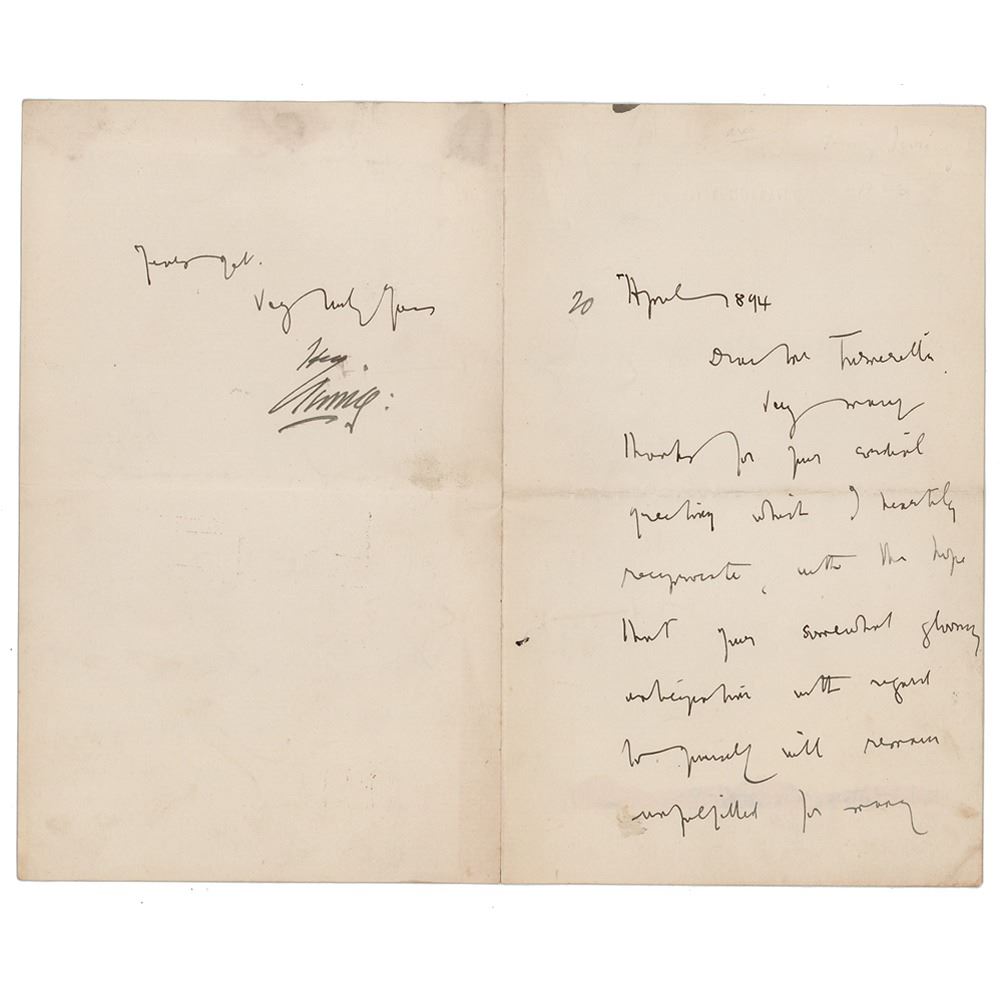 20 April 1894
Dear Mr Turnerelli.
Very many
thanks for your cordial
greeting which I heartily
reciprocate, with the hope
that your somewhat gloomy
anticipation with regard
to yourself will remain
unfulfilled for many
years yet.
Very truly yours
Henry
Irving: